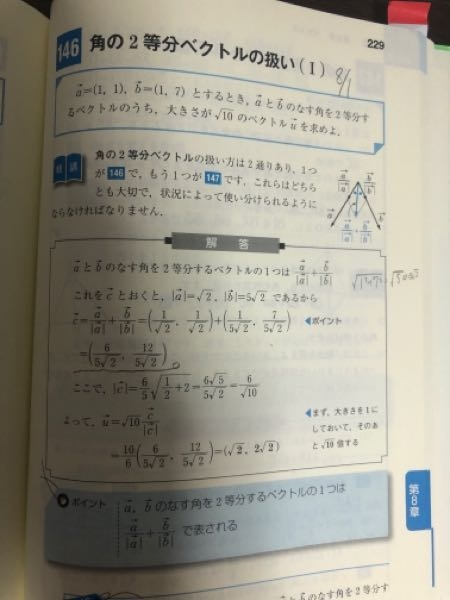 229
146 角の2等分ベクトルの扱い(Ⅰ) 8/1
a⃗=(1, 1), b⃗=(1, 7) とするとき, a⃗とb⃗のなす角を2等分す
るベクトルのうち, 大きさが√10 のベクトルu⃗を求めよ.
精講 角の2等分ベクトルの扱い方は2通りあり, 1つ
が 146 で, もう1つが 147 です. これらはどちら
とも大切で, 状況によって使い分けられるように
ならなければなりません.
a⃗/|a⃗| b⃗/|b⃗|
a⃗ b⃗
a⃗/|a⃗|+b⃗/|b⃗|
解答
a⃗とb⃗のなす角を2等分するベクトルの1つは a⃗/|a⃗|+b⃗/|b⃗|
これをc⃗とおくと, |a⃗|=√2, |b⃗|=5√2 であるから
c⃗=a⃗/|a⃗|+b⃗/|b⃗|=(1/√2, 1/√2)+(1/5√2, 7/5√2) ◀ポイント
=(6/5√2, 12/5√2)
ここで, |c⃗|=6/5√(1/2+2)=6√5/5√2=6/√10
よって, u⃗=√10 c⃗/|c⃗| ◀まず, 大きさを1に
しておいて, そのあ
と√10 倍する
=10/6(6/5√2, 12/5√2)=(√2, 2√2)
ポイント a⃗, b⃗のなす角を2等分するベクトルの1つは
a⃗/|a⃗|+b⃗/|b⃗| で表される
第8章